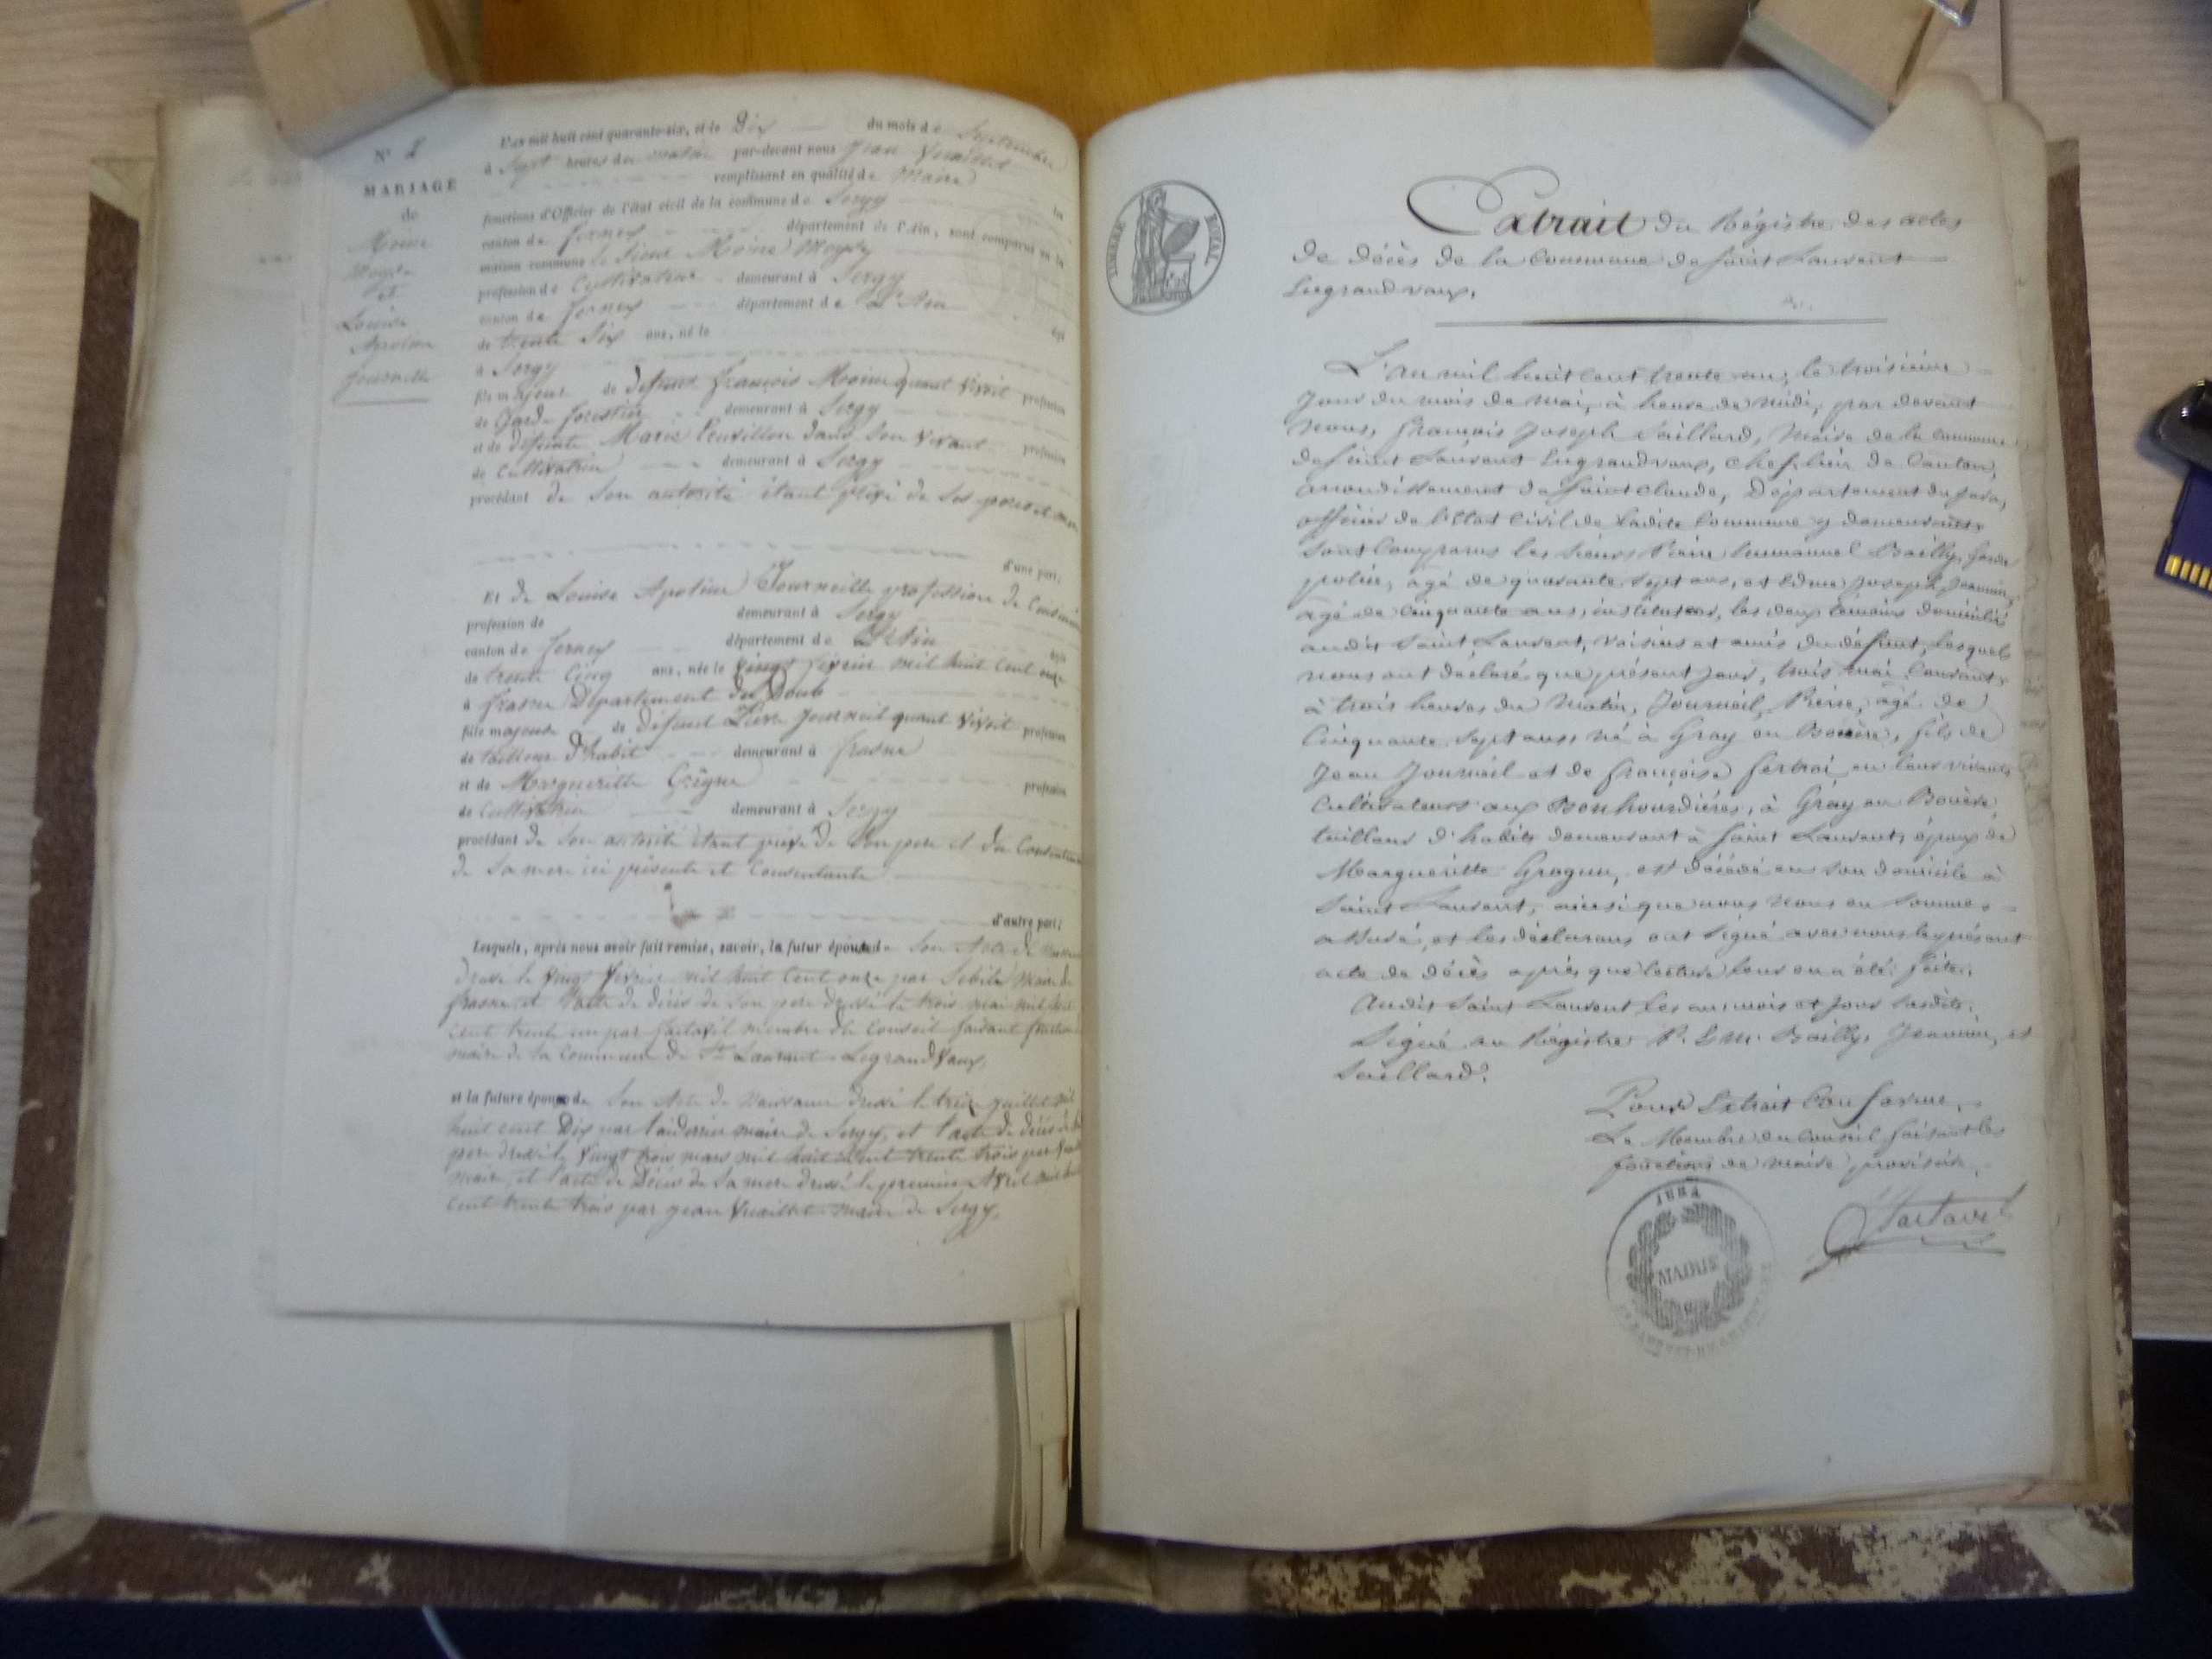 N° 8
MARIAGE
de
Moine
Moyse
et
Louise
Apoline
Journeille
L'an mil huit cent quarante-six, et le Dix du mois de Septembre
à Sept heures du matin par-devant nous Jean
remplissant en qualité de Maire les
fonctions d'Officier de l'état civil de la commune de Sergy
canton de ferney département de l'Ain, sont comparus en la
maison commune le sieur Moine Moyse
profession de Cultivateur demeurant à Sergy
canton de ferney département de L'Ain âgé
de trente six ans, né le
à Sergy
fils majeur de defunt françois Moine quant vivoit profession
de Garde forestier demeurant à Sergy
et de defunte Marie dans son vivant profession
de Cultivatrice demeurant à Sergy
procédant de son autorité étant privé de ses pere et mere
d'une part;
Et de Louise Apoline Journeille profession de
profession de demeurant à Sergy
canton de ferney département de L'Ain âgée
de trente Cinq ans, née le vingt fevrier mil huit cent onze
à frasne Département du Doub
fille majeure de défunt Pierre Journeil quant vivoit profession
de tailleur d'habit demeurant à frasne
et de Marguerite profession
de Cultivatrice demeurant à Sergy
procédant de son autorité étant privée de son pere et du Consentement
de sa mere ici présente et Consentante
d'autre part;
Lesquels, après nous avoir fait remise, savoir, la futur épouse de son Acte de
dressé le vingt fevrier mil huit cent onze par maire de
frasne, et l'acte de décès de son pere dressé le trois mai mil huit
cent trente un par membre du Conseil faisant fonction
maire de la Commune de St Laurent Legrandvaux,
et la future époux de son Acte de naissance dressé le treize juillet mil
huit cent Dix par maire de Sergy, et l'acte de décès de
pere dressé le vingt trois mars mil huit cent trente trois par
maire, et l'acte de Décès de sa mere dressé le premier Avril mil huit
cent trente trois par jean maire de Sergy.
TIMBRE ROYAL
Extrait du Régistre des actes
de décès de la Commune de saint Laurent
Legrandvaux.
L'an mil huit cent trente un, le troisième
jour du mois de mai, à heure de midi, par devant
nous, françois Joseph Saillard, Maire de la Commune
de saint Laurent Legrandvaux, chef lieu de Canton,
arrondissement de saint Claude, Département du jura,
officier de l'état Civil de ladite Commune y demeurant
sont Comparus les sieurs Pierre Emmanuel Bailly, garde
police, agé de quarante sept ans, et Edme Joseph Jeannin,
agé de cinquante ans, instituteur, les deux témoins domiciliés
audit saint Laurent, voisins et amis du défunt, lesquels
nous ont déclaré que présent jour, trois mai Courant,
à trois heures du Matin, Journeil, Pierre, agé de
Cinquante Sept ans, né à Gray ou Bouère, fils de
Jean Journeil et de françoise en leurs vivants
Cultivateurs aux à Gray ou Bouère,
tailleur d'habits demeurant à saint Laurent, époux de
Margueritte est décédé en son domicile à
saint Laurent, ainsi que nous nous en sommes
assuré, et les déclarans ont signé avec nous le présent
acte de décès après que lecture leur en a été faite.
Audit saint Laurent les an, mois et jour susdits.
Signé au Régistre P. E. M. Bailly, Jeannin, et
Saillard.
Pour Extrait Conforme,
Le Membre du Conseil faisant les
fonctions de maire provisoire,
JURA
MAIRIE